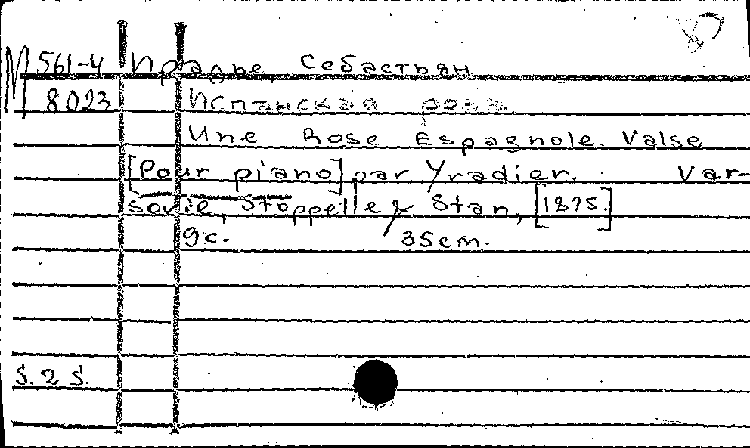 М 561-4 Ирадье, Себастьян
8023 Испанская роза.
Une Rose Espagnole. Valse
[Pour piano] par Yradier. Var-
sovie, Stöppelle & Stan, [1875.]
9с. 35cm.
S. 2 S.